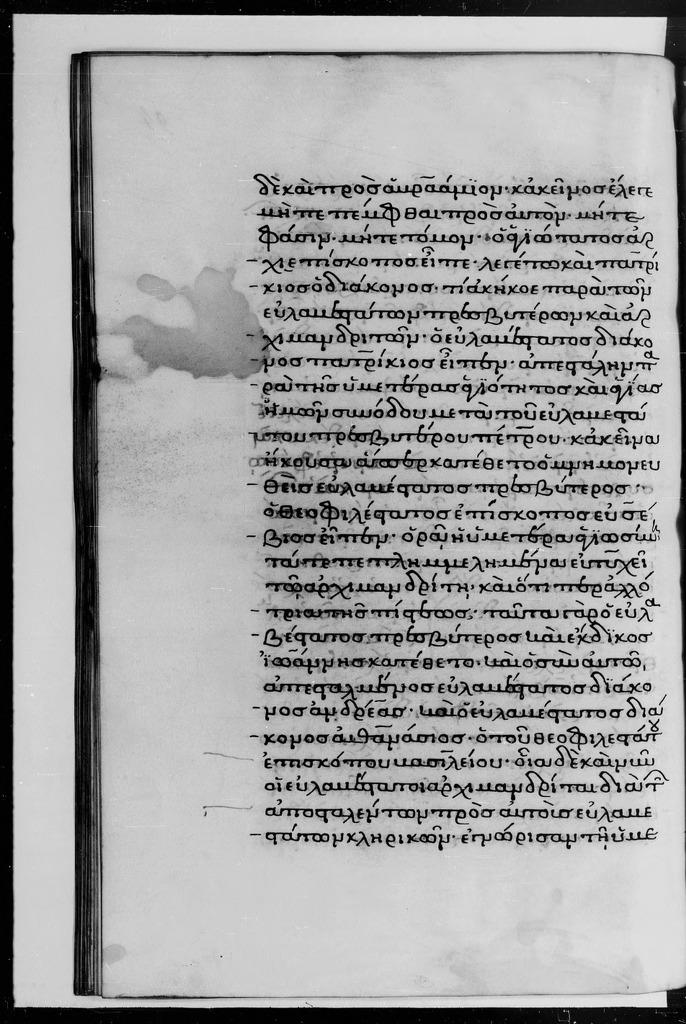 δὲ καὶ πρὸς ἀβραάμιον· κἀκεῖνος ἔλεγε
μὴ πεπέμφθαι πρὸς αὐτὸν μήτε
φάσιν· μήτε τόμον· ὁ ἁγιώτατος ἀρ
χιεπίσκοπος εἶπε· λεγέτω καὶ πατρί
κιος ὁ διάκονος· τί ἀκήκοε παρὰ τῶν
εὐλαβεστάτων πρεσβυτέρων καὶ ἀρ
χιμανδριτῶν· ὁ εὐλαβέστατος διάκο
νος πατρίκιος εἶπεν· ἀπεστάλην πα
ρὰ τῆς ὑμετέρας ἁγιότητος καὶ ἁγίας
ὑμῶν συνόδου μετὰ τοῦ εὐλαβεστά
του πρεσβυτέρου πέτρου· κἀκεῖνα
ἤκουσα ἅπερ κατέθετο ὁ μνημονευ
θεὶς εὐλαβέστατος πρεσβύτερος·
ὁ θεοφιλέστατος ἐπίσκοπος εὐσέ
βιος εἶπεν· ὁρᾷ ἡ ὑμετέρα ἁγιωσύνη
τὰ πεπλημμελημένα εὐτυχεῖ
τῷ ἀρχιμανδρίτῃ· καὶ ὅτι πέρα ἀλλό
τρια τῆς πίστεως· ταῦτα γὰρ ὁ εὐλα
βέστατος πρεσβύτερος καὶ ἔκδικος
ἰωάννης κατέθετο· καὶ ὁ σὺν αὐτῷ
ἀπεσταλμένος εὐλαβέστατος διάκο
νος ἀνδρέας· καὶ ὁ εὐλαβέστατος διά
κονος ἀθανάσιος· ὁ τοῦ θεοφιλεστάτου
ἐπισκόπου βασιλείου· διὰ δὲ καὶ νῦν
οἱ εὐλαβέστατοι ἀρχιμανδρῖται διὰ τῶν
ἀποσταλέντων πρὸς αὐτοὺς εὐλαβε
στάτων κληρικῶν· ἐγνώρισαν τῇ ὑμε